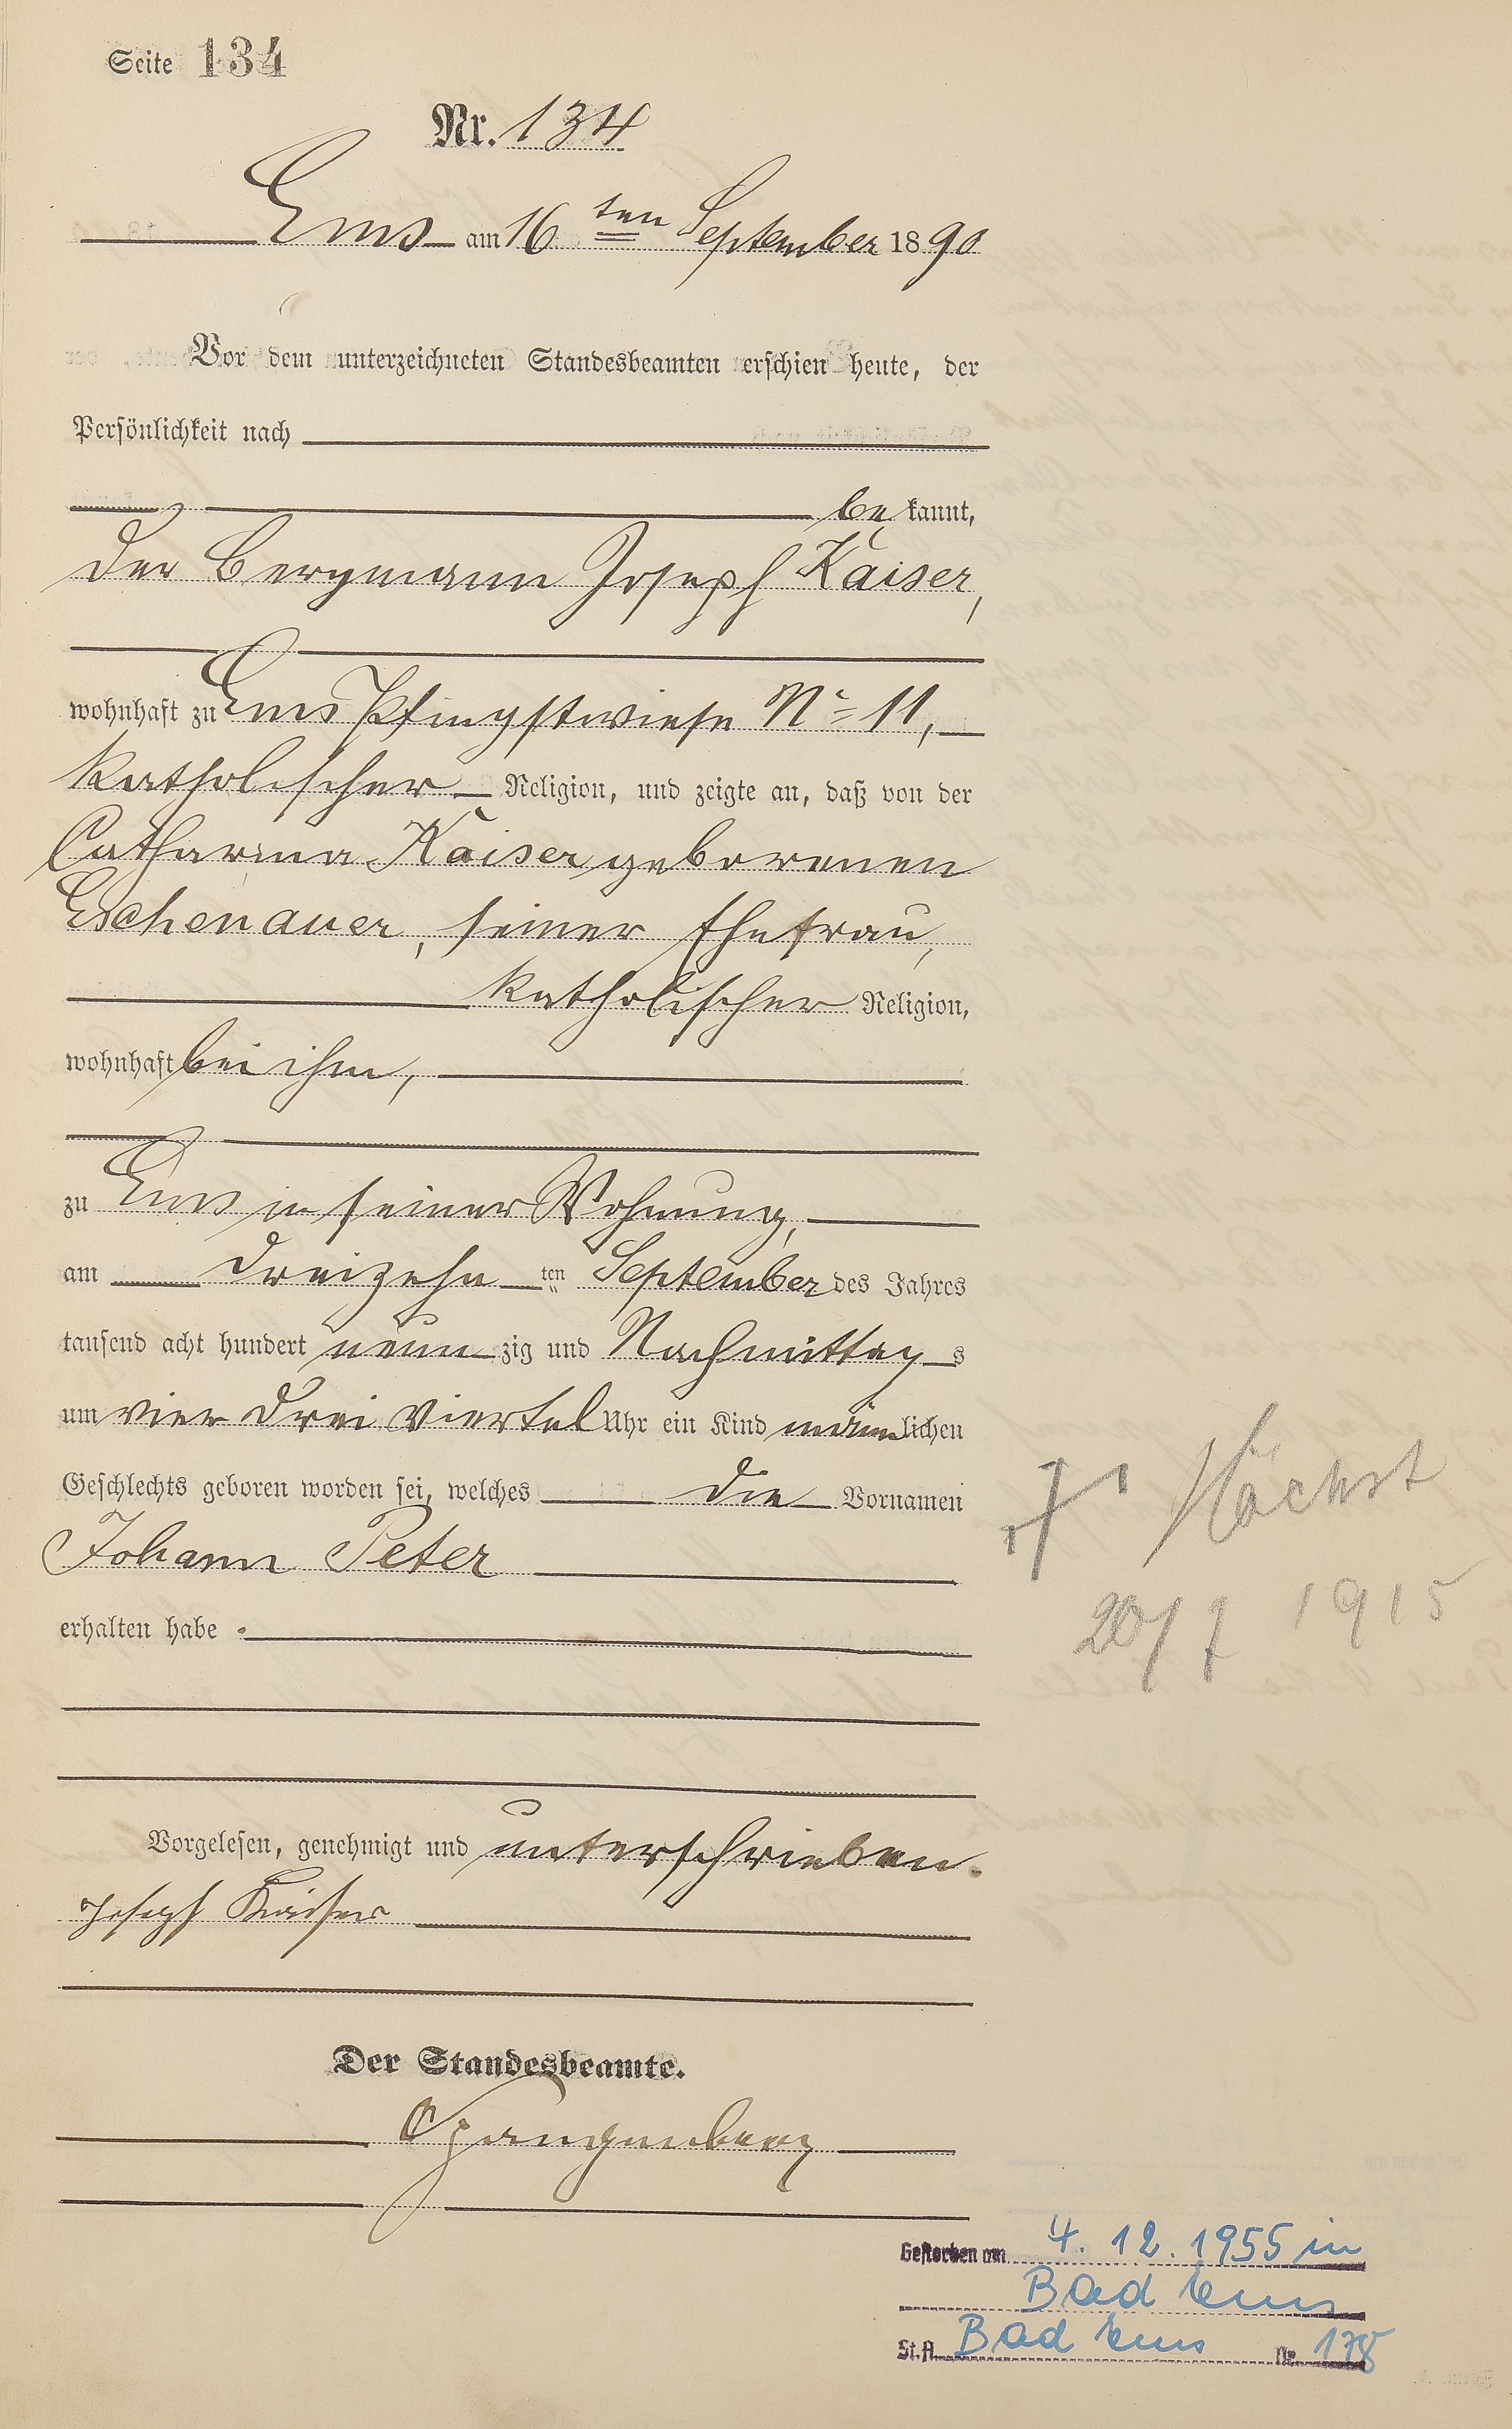 Seite 134
Nr. 134
Ems am 16ten September 1890
Vor dem unterzeichneten Standesbeamten erschien heute, der
Persönlichkeit nach
bekannt,
der Bergmann Joseph Kaiser,
wohnhaft zu Ems Pfingstwiese No 11,
katholischer Religion, und zeigte an, daß von der
Catharina Kaiser geborenen
Eschenauer, seiner Ehefrau,
katholischer Religion,
wohnhaft bei ihm,
zu Ems in seiner Wohnung,
am dreizehnten September des Jahres
tausend acht hundert neunzig und Nachmittags
um vier drei Viertel Uhr ein Kind männlichen
Geschlechts geboren worden sei, welches die Vornamen
Johann Peter
erhalten habe.
Vorgelesen, genehmigt und unterschrieben.
Joseph Kaiser
Der Standesbeamte.
Höchst
1915
Gestorben am 4. 12. 1955 in
Bad Ems
St. A. Bad Ems Nr. 178